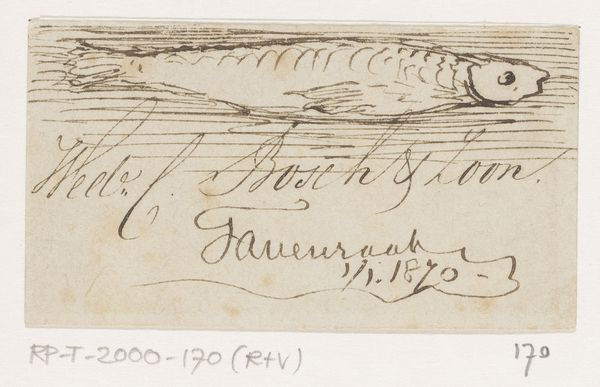 Wed.e C. Bosch & Zoon.
1/1. 1870 -
RP-T-2000-170 (R+V)
170